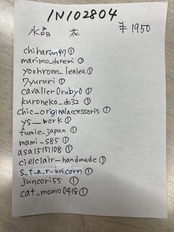 IN102804
水晶 太 ¥1950
chiharun97①
marimo_doremi ①
yoohnom_lealea①
7yururi ①
cavalier0ruby0 ①
kuroneko_do32 ①
chic_originalaccessoris ①
ys__work ①
fumie_japan ①
mami-585 ①
asa15151108 ①
cielclair-handmade ①
s_t_a_r-unicorn ①
juncori55 ①
cat_momo0418 ①